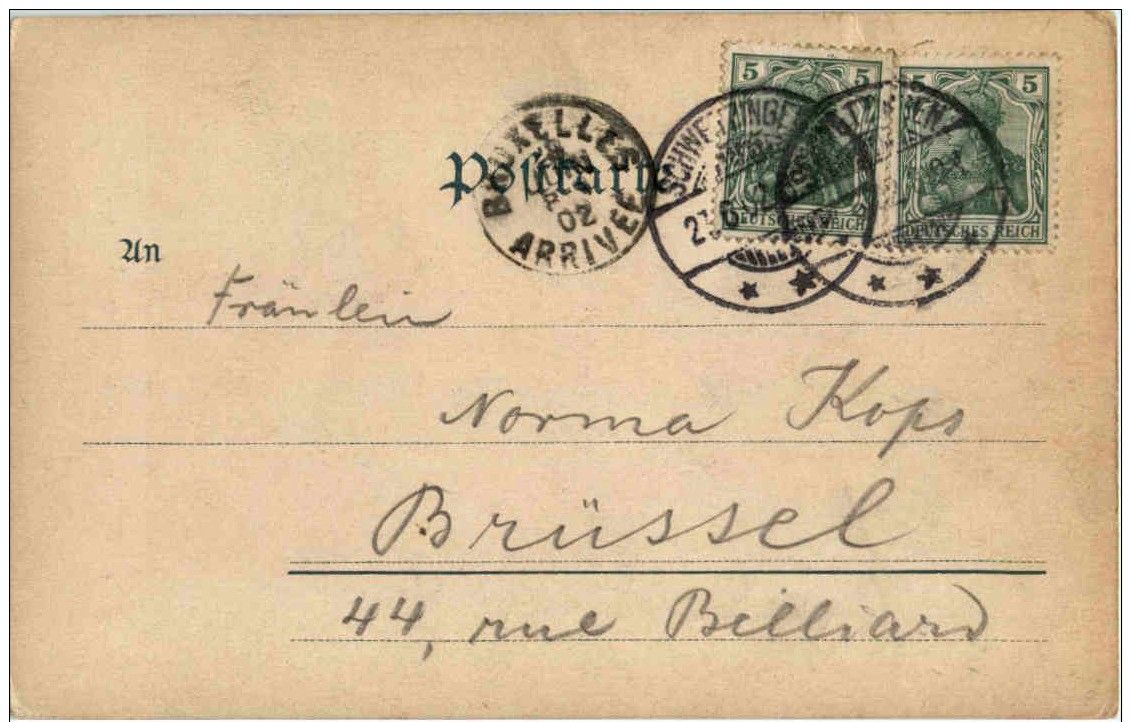 5 5 5 5
DEUTSCHES REICH DEUTSCHES REICH
BRUXELLES
02
ARRIVEE
SCHWETZINGEN
Postkarte
An
Fräulein
Norma Kops
Brüssel
44, rue Billiard